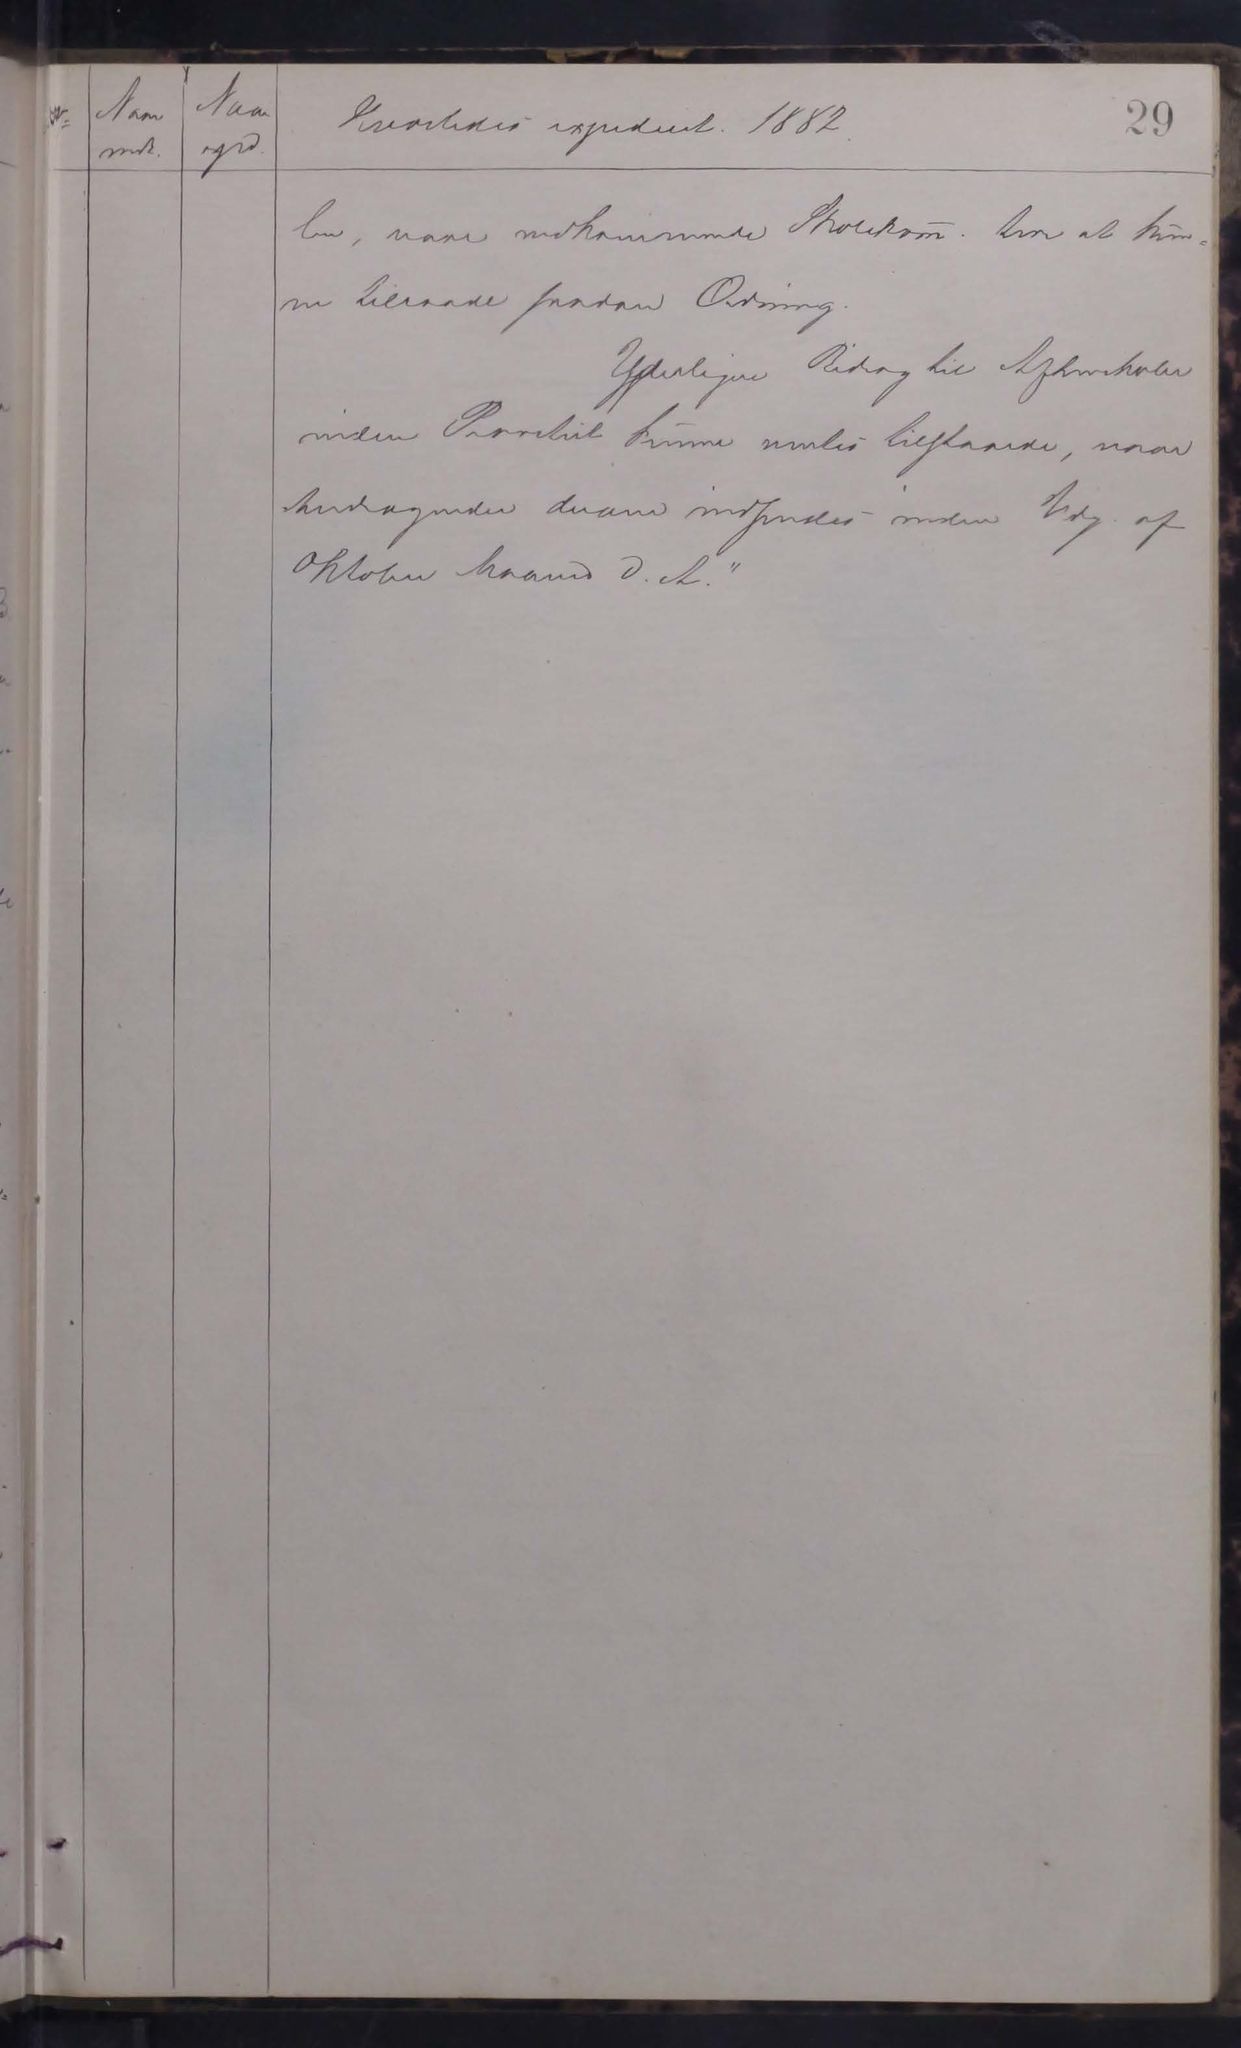 Naar
modt.
Naar
expd.
Hvorledes expederet. 1882
29
len, naar vedkommende Skolekom̄. tror at kun-
ne tilraade saadan Ordning.
Yderligere Bidrag til Aftenskoler
inden Provstiet kunne ventes tilstaaede, naar
Andragender derom indsendes inden Udg. af
Oktober Maaned d. A."